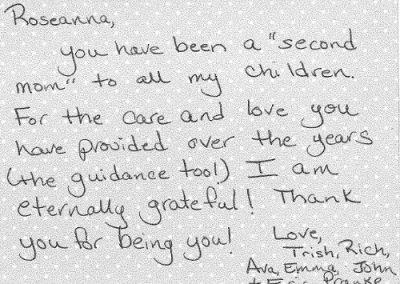 Roseanna,
you have been a "second
mom" to all my children.
For the care and love you
have provided over the years
(the guidance too!) I am
eternally grateful! Thank
you for being you!
Love,
Trish, Rich,
Ava, Emma, John
+